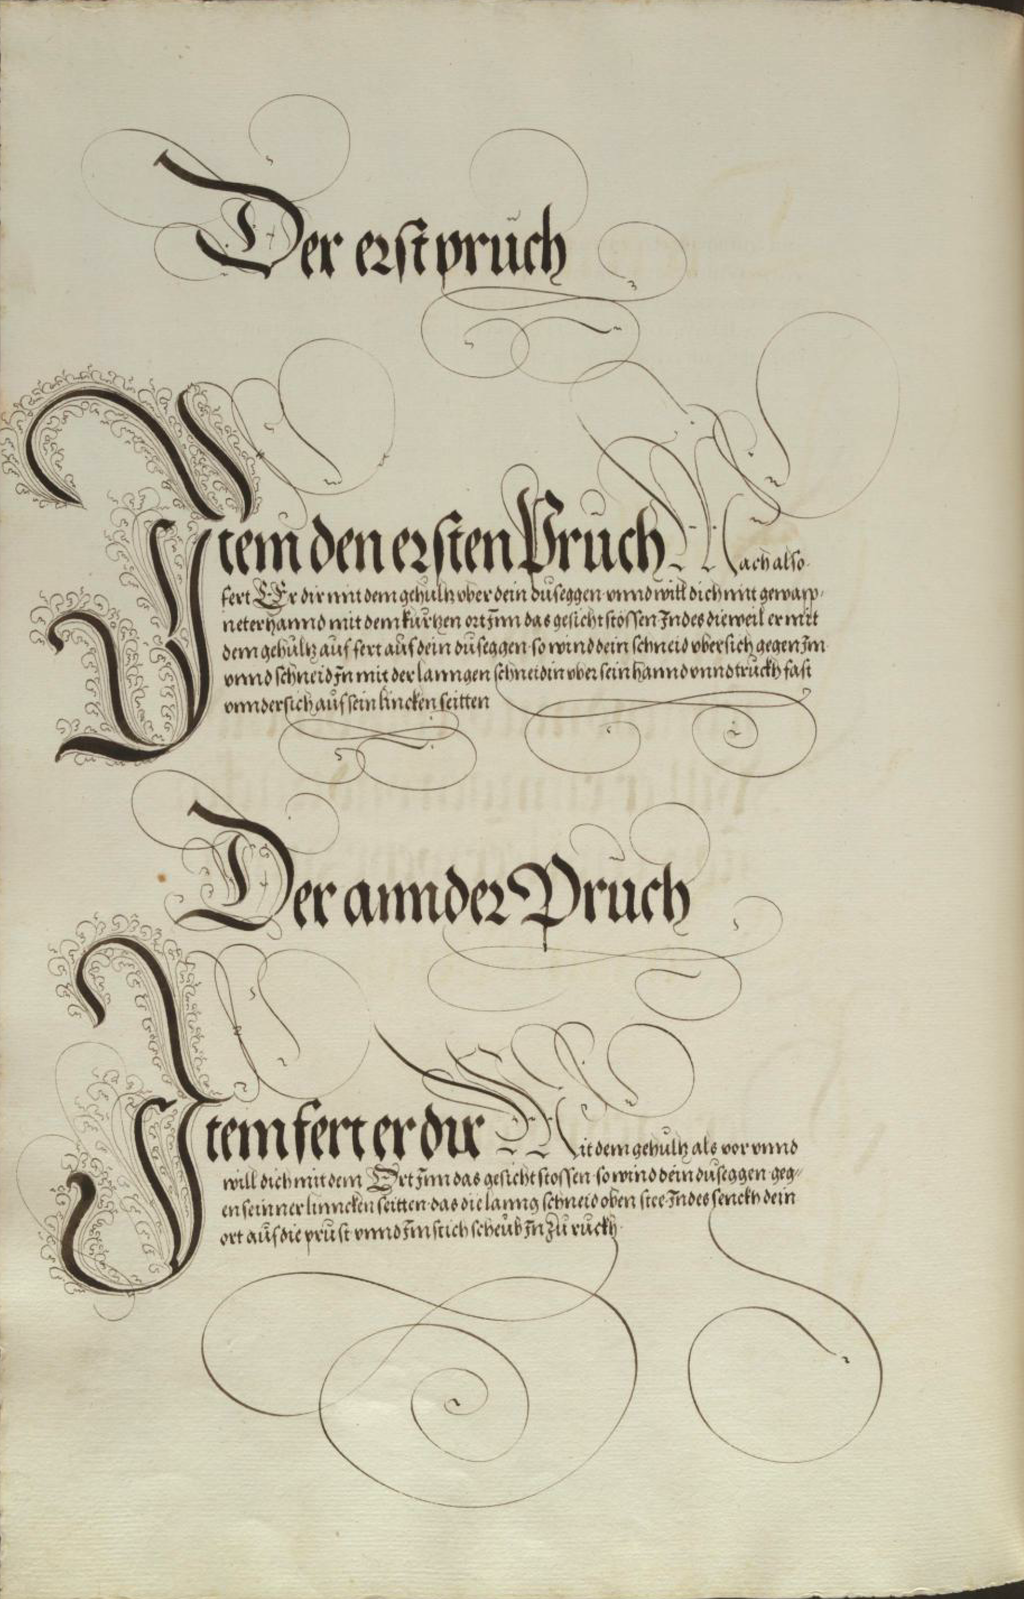 Der erst pruch
Item den ersten Pruch Mach also
fert Er dir mit dem gehultz vber dein duseggen vnnd will dich mit gewapp-
neter hannd mit dem kurtzen ort Inn das gesicht stossen Indes dieweil er mit
dem gehultz auf fert auf dein duseggen so wind dein schneid vbersich gegen Im
vnnd schneid In mit der lanngen schneid in vber sein hannd vnnd truckh fast
vnndersich auf sein lincken seitten
Der annder Pruch
Item fert er dir Mit dem gehultz als vor vnnd
will dich mit dem Ort Inn das gesicht stossen so wind dein duseggen geg-
en seinner linncken seitten das die lanng schneid oben stee Indes senckh dein
ort auf die prust vnnd Im stich scheub In zu ruckh